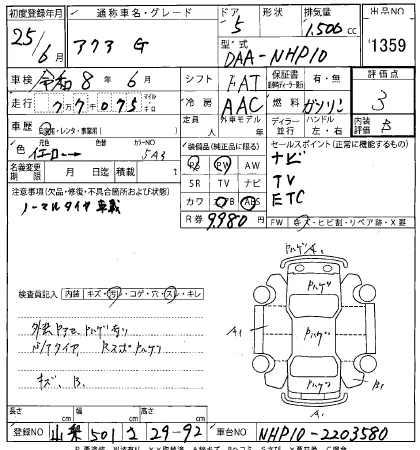 初度登録年月 通称車名・グレード ドア 形状 排気量 出品NO
25/6月 アクア G 5 1,500cc 1359
型式 DAA-NHP10
車検 令和8年6月 シフト FAT 保証書 有・無 評価点
走行 77075 マイル キロ 冷房 AAC 燃料 ガソリン 3
車歴 自家用・レンタ・事業用 定員 人 外車モデル 年 ディーラー 並行 ハンドル 左・右 内装 B
色 イエロー 色替 カラーNO 5A3 装備品(純正品に限る) セールスポイント(正常に機能するもの)
名義変更期限 月 日 積載 t PS PW AW ナビ
注意事項(欠品・修復・不具合箇所および状態) SR TV ナビ TV
ノーマルタイヤ車載 カワ エアB ABS ETC
R券 9,980円 FW キズ・ヒビ割・リペア跡・X要
検査員記入 内装 キズ・汚レ・コゲ・穴・スレ・キレ
A1
A1
B1
A1
キズ、B、
長さ cm 幅 cm 高さ cm
登録NO 山梨 501 さ 29-92 車台NO NHP10-2203580